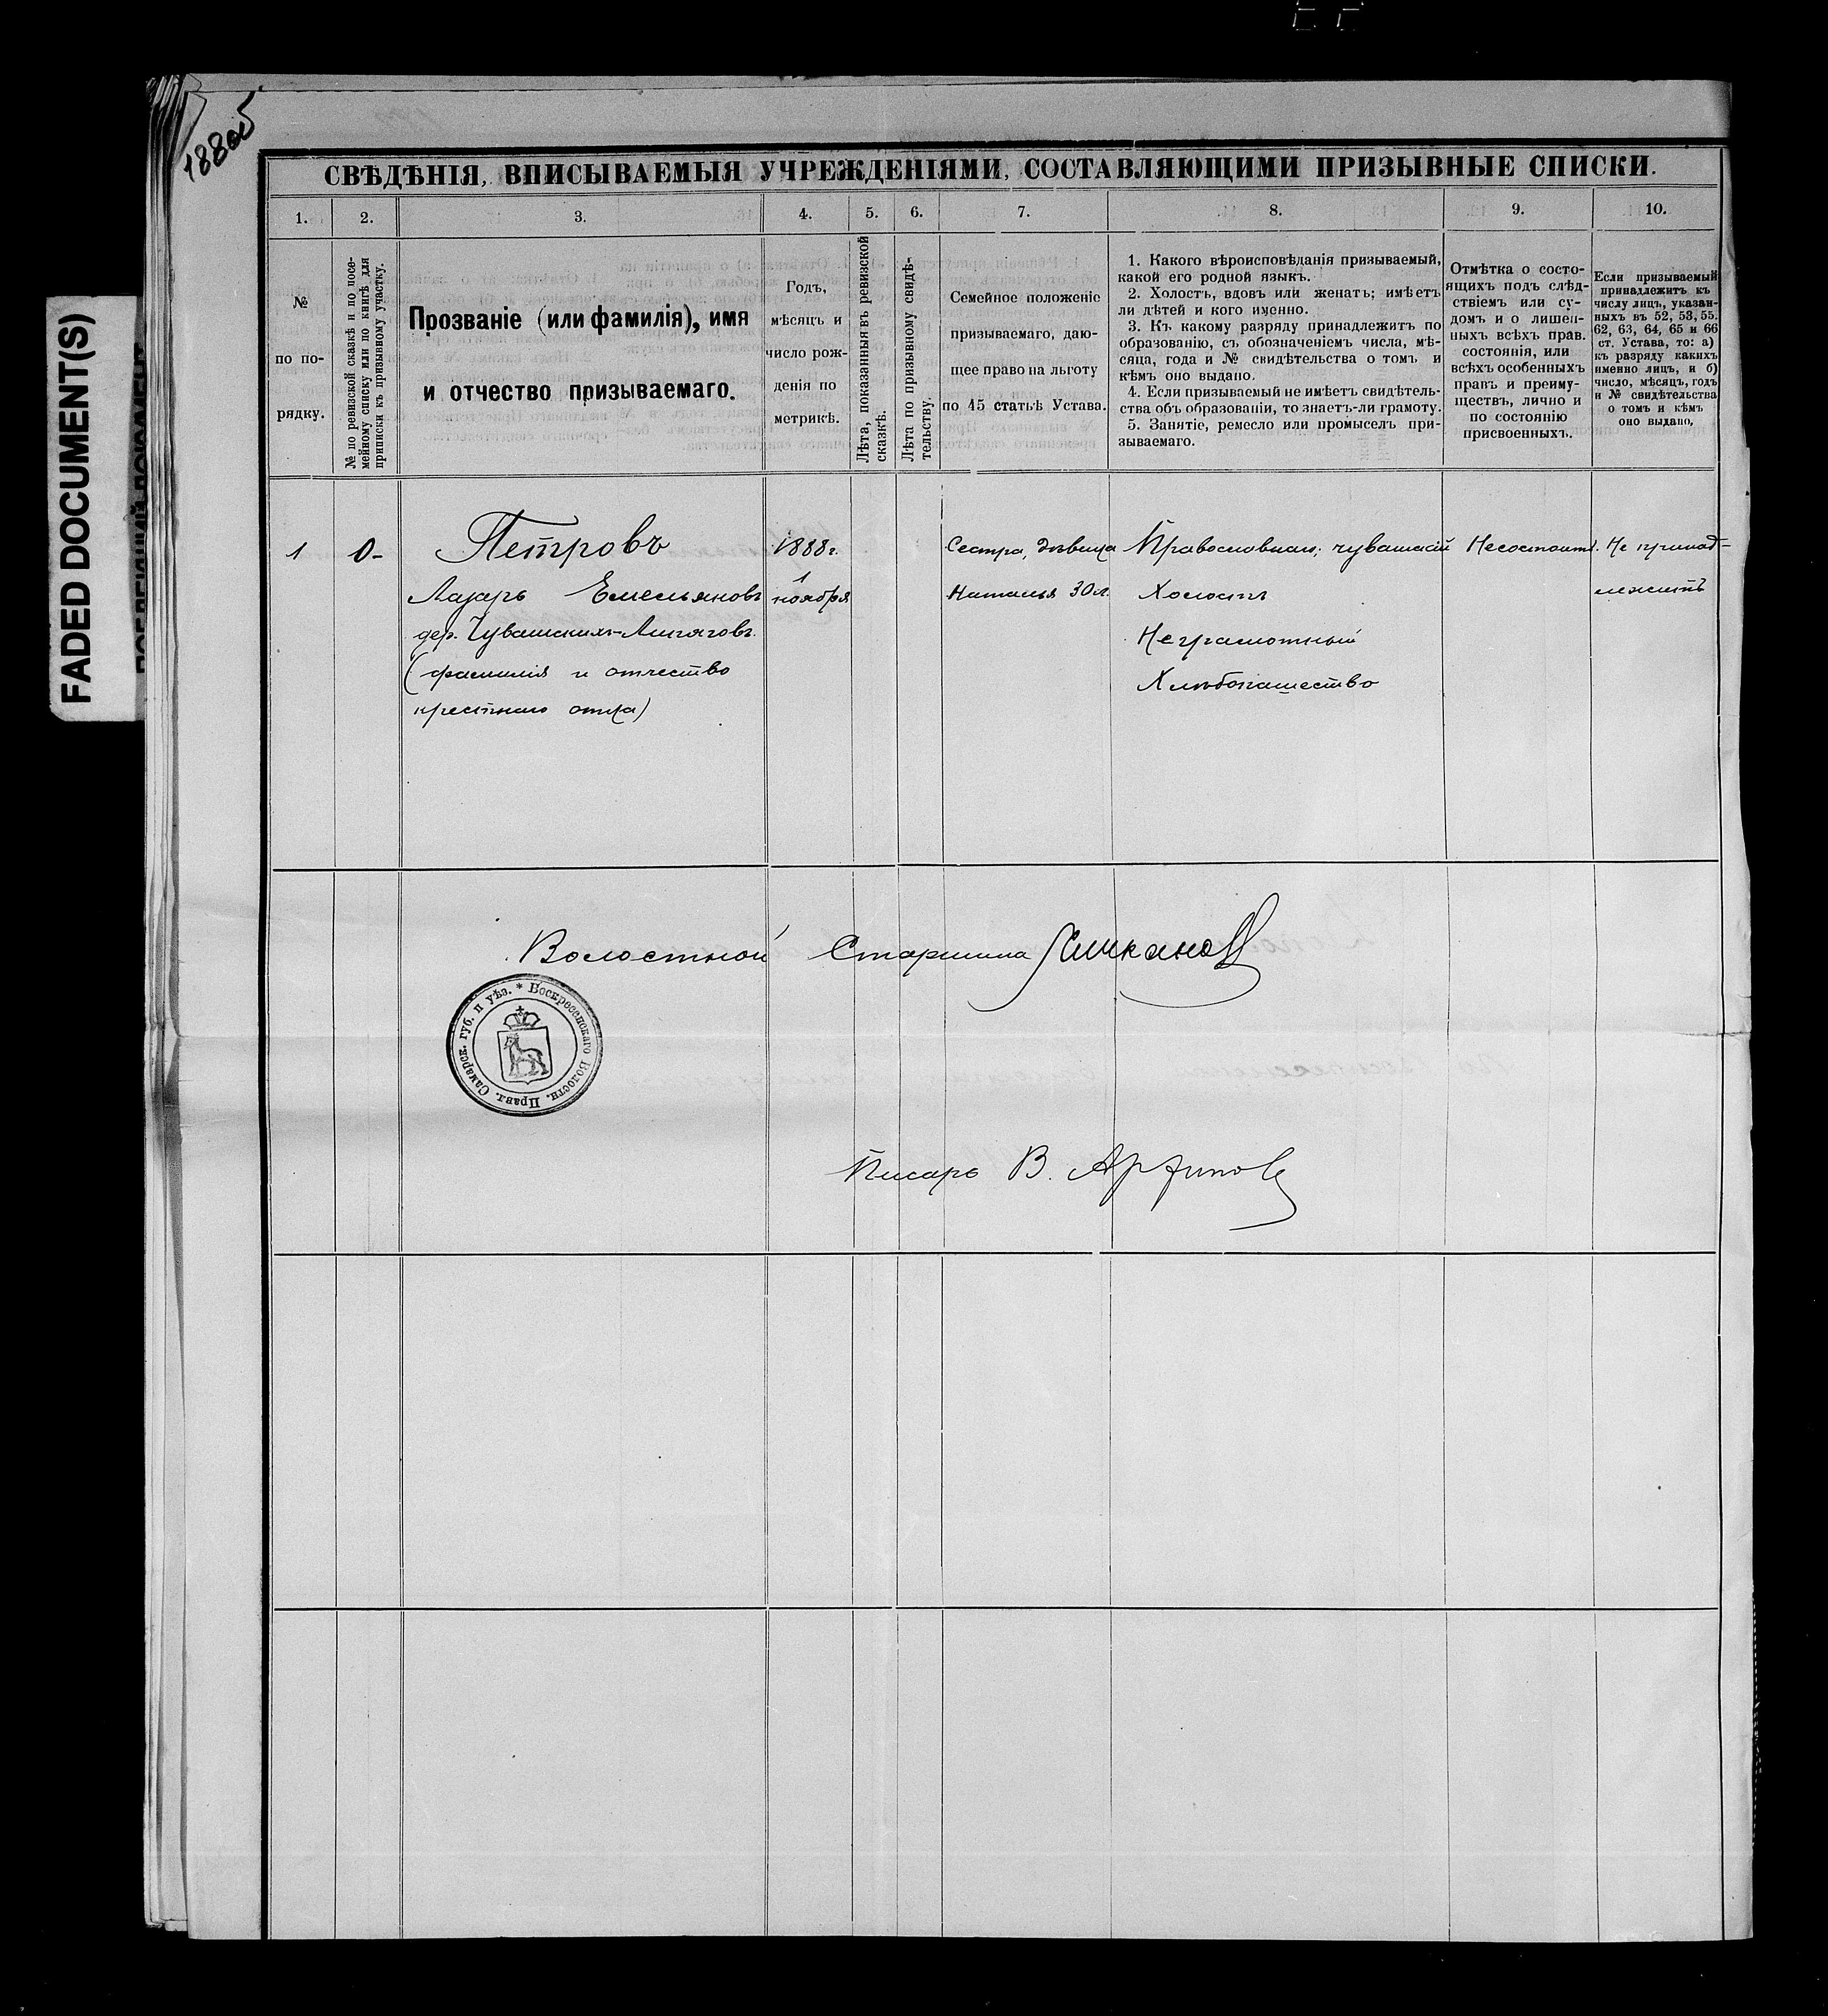 188об
FADED DOCUMENT(S)
СВѢДѢНІЯ, ВПИСЫВАЕМЫЯ УЧРЕЖДЕНІЯМИ, СОСТАВЛЯЮЩИМИ ПРИЗЫВНЫЕ СПИСКИ.
1.
2.
3.
4.
5.
6.
7.
8.
9.
10.
№
по по-
рядку.
№ по ревизской сказкѣ и по посе-
мейному списку или по книгѣ для
приписки къ призывному участку.
Прозваніе (или фамилія), имя
и отчество призываемаго.
Годъ,
мѣсяцъ и
число рож-
денія по
метрикѣ.
Лѣта, показанныя въ ревизской
сказкѣ.
Лѣта по призывному свидѣ-
тельству.
Семейное положеніе
призываемаго, даю-
щее право на льготу
по 45 статьѣ Устава.
1. Какого вѣроисповѣданія призываемый,
какой его родной языкъ.
2. Холостъ, вдовъ или женатъ; имѣетъ
ли дѣтей и кого именно.
3. Къ какому разряду принадлежитъ по
образованію, съ обозначеніемъ числа, мѣ-
сяца, года и № свидѣтельства о томъ и
кѣмъ оно выдано.
4. Если призываемый не имѣетъ свидѣтель-
ства объ образованіи, то знаетъ-ли грамоту.
5. Занятіе, ремесло или промыселъ при-
зываемаго.
Отмѣтка о состо-
ящихъ подъ слѣд-
ствіемъ или су-
домъ и о лишен-
ныхъ всѣхъ прав.
состоянія, или
всѣхъ особенныхъ
правъ и преиму-
ществъ, лично и
по состоянію
присвоенныхъ.
Если призываемый
принадлежитъ къ
числу лицъ, указан-
ныхъ въ 52, 53, 55,
62, 63, 64, 65 и 66
ст. Устава, то: а)
къ разряду какихъ
именно лицъ, и б)
число, мѣсяцъ, годъ
и № свидѣтельства
о томъ и кѣмъ
оно выдано.
1
0-
Петровъ
Лазарь Емельяновъ
дер. Чувашскихъ-Липяговъ
(фамилія и отчество
крестнаго отца)
1888г.
1
ноября
Сестра, дѣвица
Наталья 30л.
Православнаго; чувашскій
Холостъ
Неграмотный
Хлѣбопашество
Несостоитъ.
Не принад-
лежитъ
Волостной Старшина
* Воскресенскаго Волостн. Правл. Самарск. губ. и уѣз.
Писарь В.